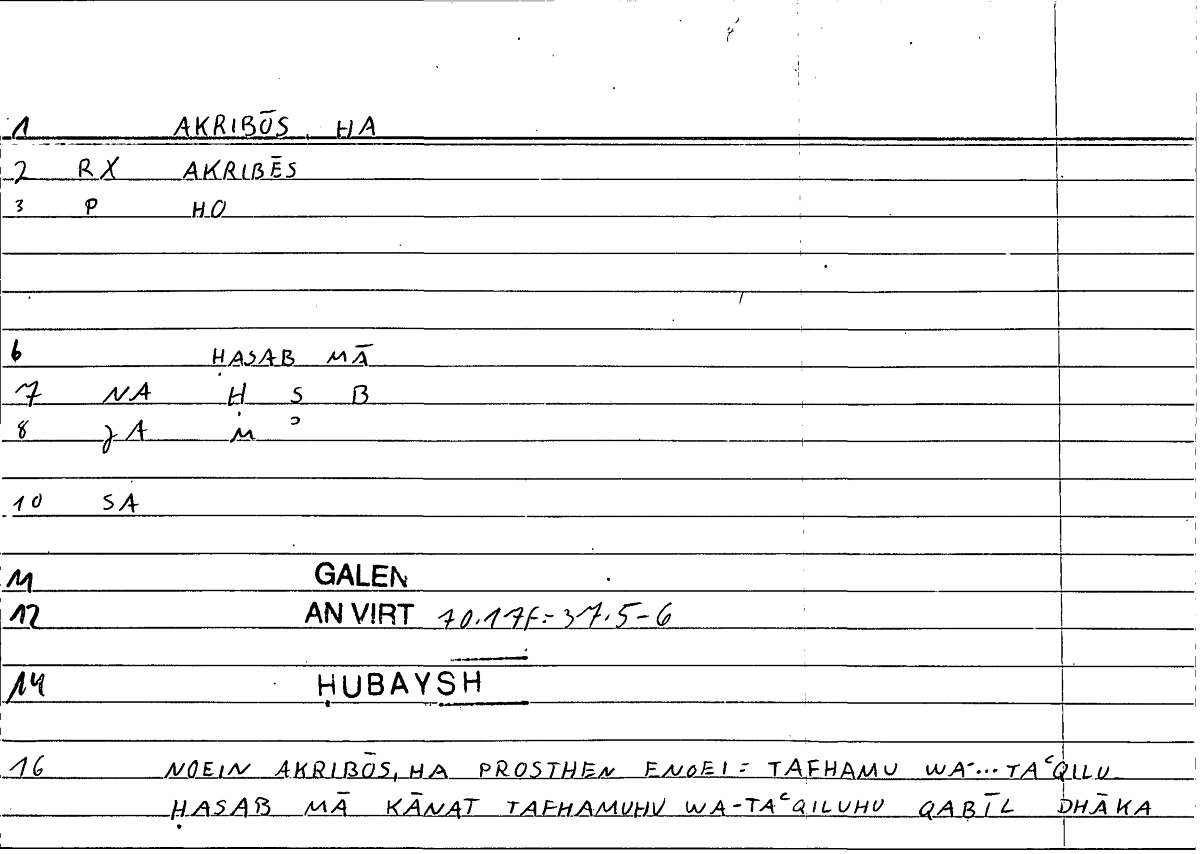 1 AKRIBŌS, HA
2 RX AKRIBĒS
3 P HO
6 ḤASAB MĀ
7 NA Ḥ S B
8 JA M ʾ
10 SA
11 GALEN
12 AN VIRT 70.17f = 37.5-6
14 ḤUBAYSH
16 NOEIN AKRIBŌS, HA PROSTHEN ENOEI = TAFHAMU WA-... TAʿQILU
ḤASAB MĀ KĀNAT TAFHAMUHU WA-TAʿQILUHU QABĪL DHĀKA